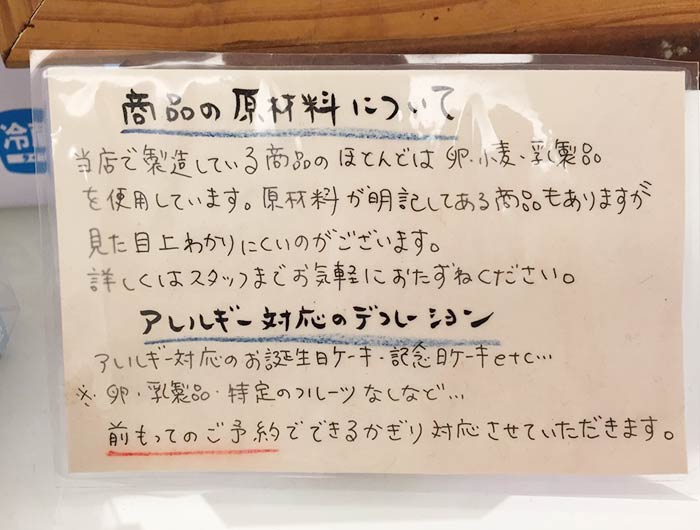 商品の原材料について
当店で製造している商品のほとんどは 卵・小麦・乳製品
を使用しています。原材料が明記してある商品もありますが
見た目上わかりにくいのがございます。
詳しくはスタッフまでお気軽におたずねください。
アレルギー対応のデコレーション
アレルギー対応のお誕生日ケーキ・記念日ケーキetc…
※卵・乳製品・特定のフルーツなしなど…
前もってのご予約でできるかぎり対応させていただきます。
冷